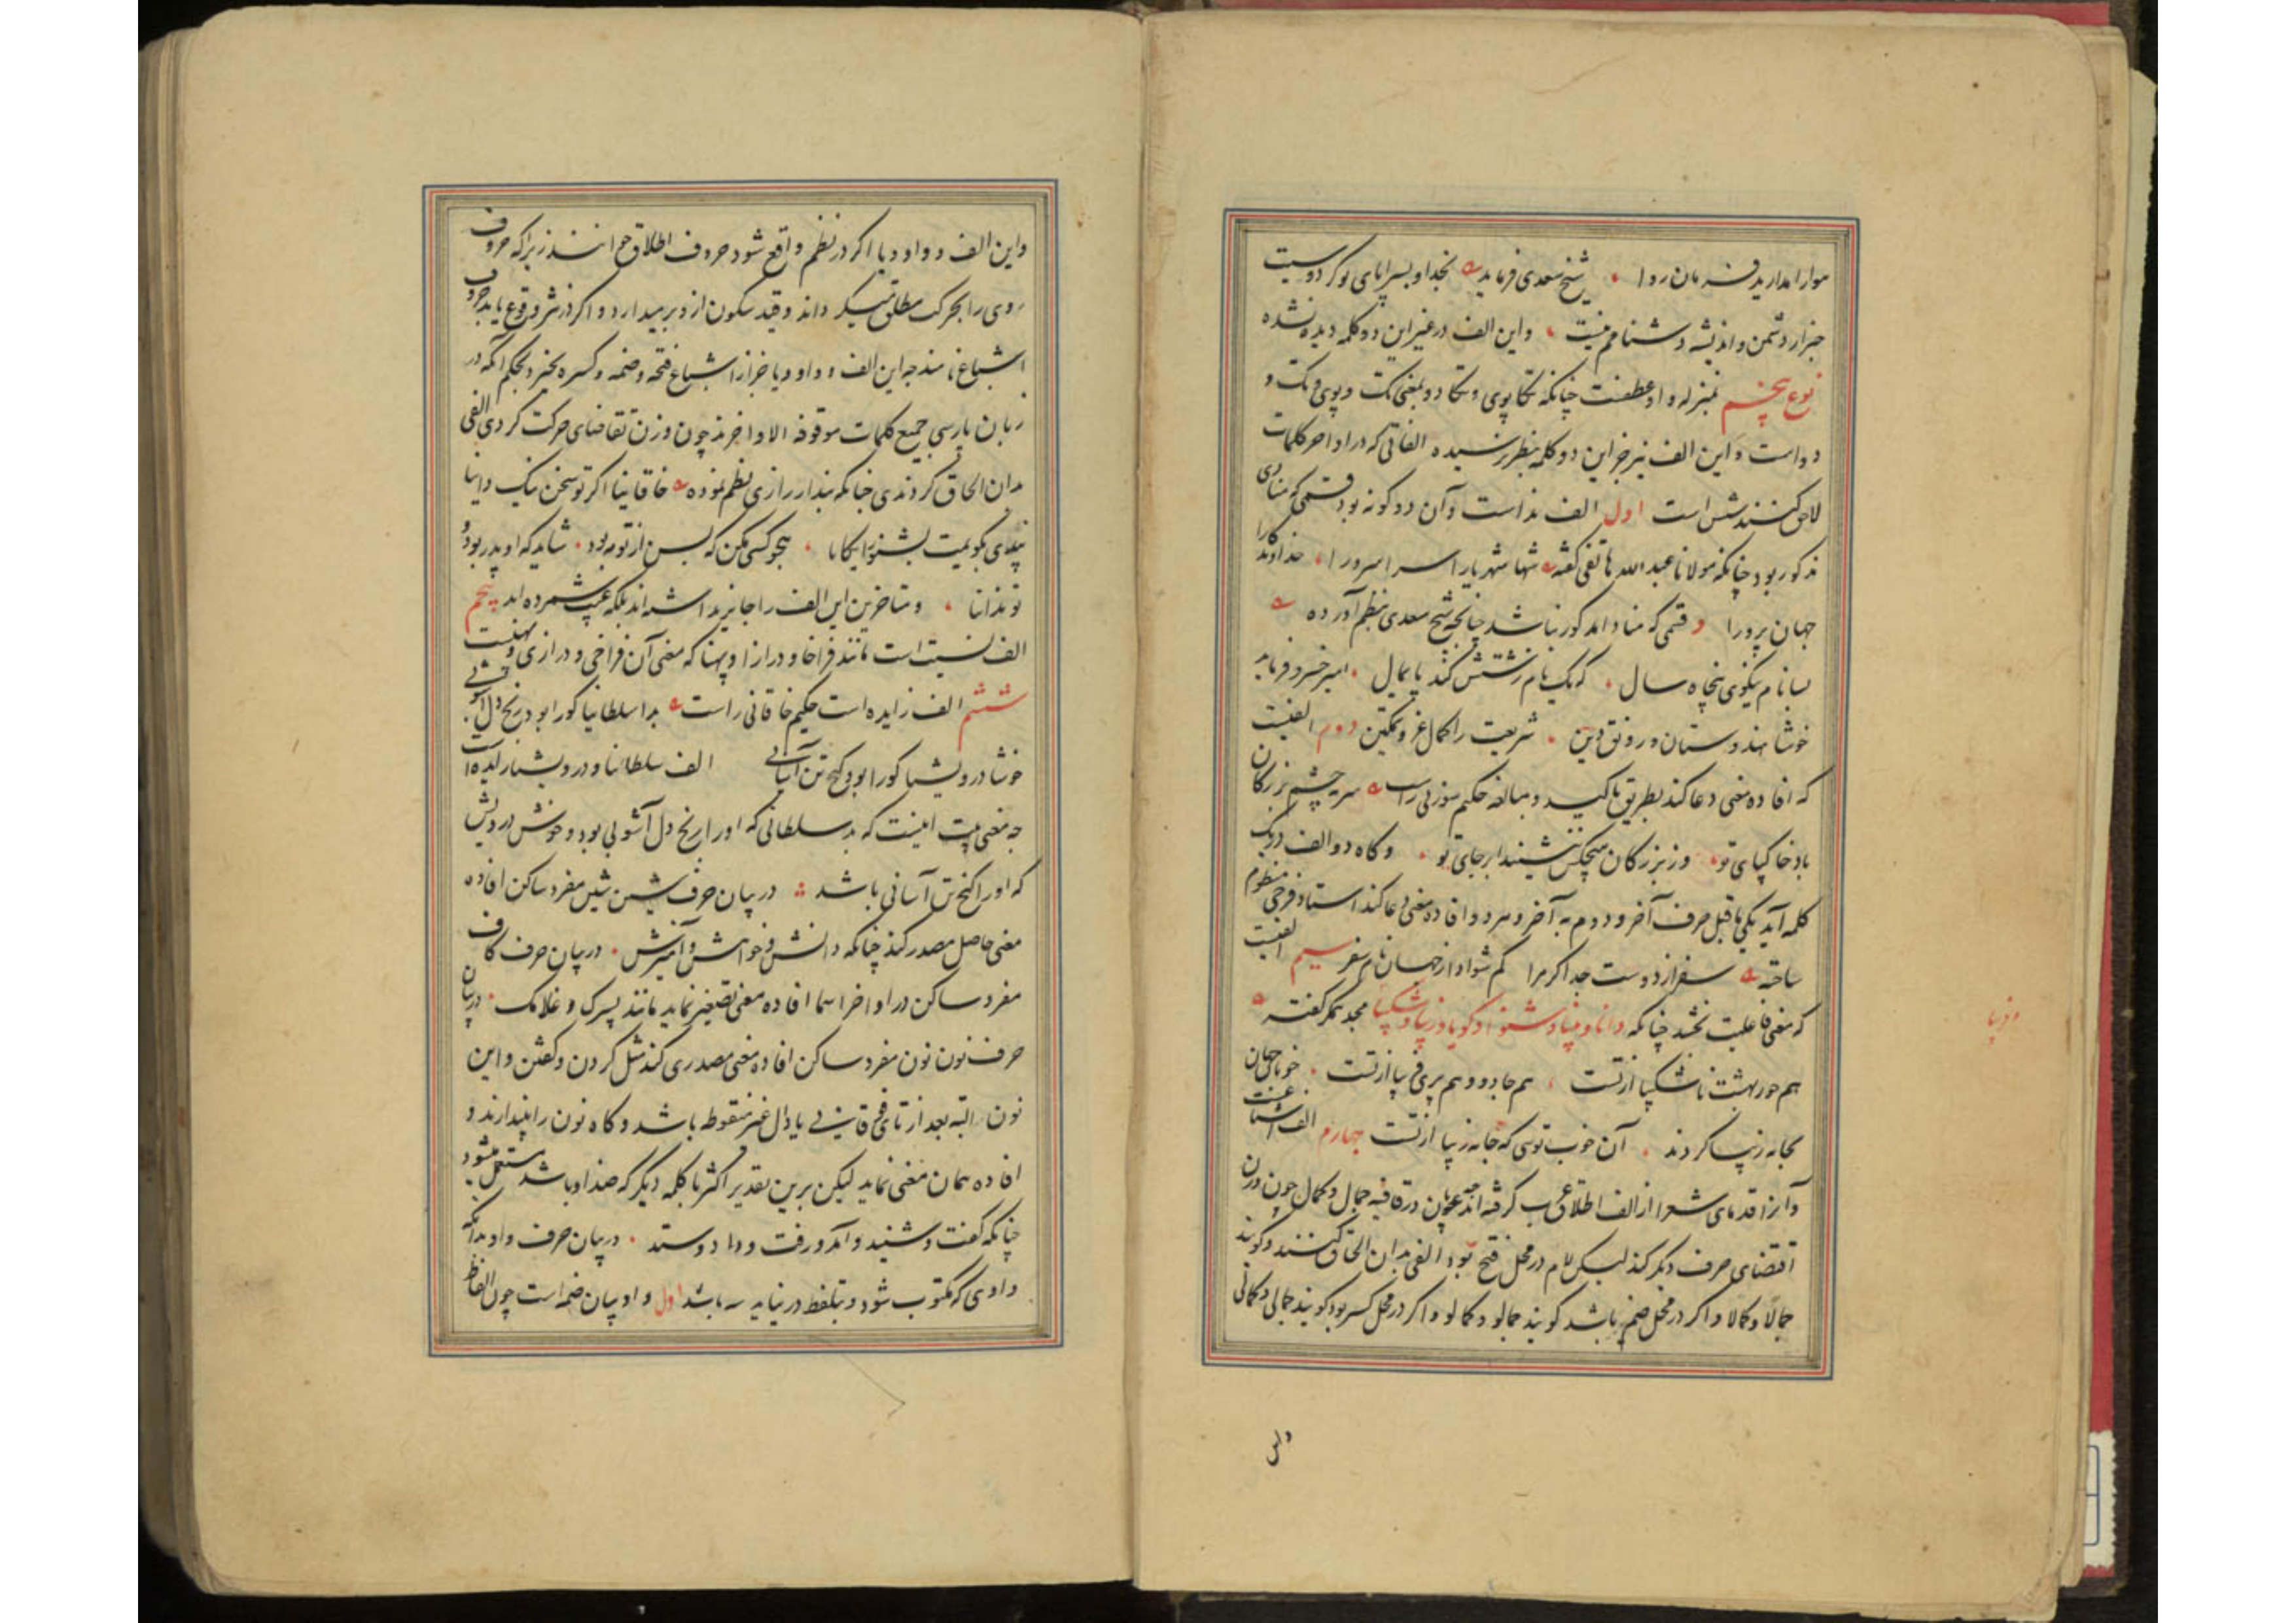 موار امدارید فرمان روا شیخ سعدی فرماید بخدا و بسراپای تو کز دوستیت
خبر از دشمن و اندیشه دشنامم نیست و این الف در غیر این دو کلمه دیده نشده
نوع پنجم بمنزله واو عطفست چنانکه تکاپوی و تکادو بمعنی تک و پوی و تک و
دو است و این الف نیز جز این دو کلمه بنظر نرسیده الفاتی که در اواخر کلمات
لاحق کنند شش است اول الف نداست و آن دو گونه بود قسمی که منادی
مذکور بود چنانکه مولانا عبدالله هاتفی گفته شها شهریارا سرا سرورا خداوندگارا
جهان پرورا و قسمی که منادا مذکور نباشد چنانچه شیخ سعدی بنظم آورده
بسا نام نیکوی پنجاه سال که یک نام زشتش کند پایمال امیر خسرو فرماید
خوشا هندوستان و رونق دین شریعت را کمال عز و تمکین دوم الفیست
که افاده معنی دعا کند بطریق تاکید و مبالغه حکیم سوزنی راست سرچشم بزرگان
باد خاکپای تو وز بزرگان هیچکس ننشیندا بر جای تو و گاه دو الف در یک
کلمه آید یکی ماقبل حرف آخر و دوم به آخر و هر دو افاده معنی دعا کند استاد فرخی منظوم
ساخته سفر از دوست جدا کرد مرا کم شواد از جهان نام سفر سیم الفیست
که معنی فاعلیت بخشد چنانکه دانا و بینا و شنوا و گویا و زیبا و شکیبا مجد همگر گفته
و فریبا
هم حور بهشت ناشکیبا از تست هم جادو و هم پری فریبا از تست خوبان جهان
بجامه زیبا کردند آن خوب توئی که جامه زیبا از تست چهارم الف اشباعیست
و آنرا قدمای شعرا از الف اطلاق عرب گرفته اند چه عربان در قافیه جمال و کمال چون وزن
اقتضای حرف دیگر کند لیکن لام در محل فتح بود الفی بدان الحاق کنند و گویند
جمالا و کمالا و اگر در محل ضم باشد گویند جمالو و کمالو و اگر در محل کسر بود گویند جمالی و کمالی
و این
و این الف و واو و یا اگر در نظم واقع شود حروف اطلاق خوانند زیراکه حروف
روی را بحرکت مطلق میگرداند و قید سکون از و بر میدارد و اگر در نثر وقوع یابد حروف
اشباع نامند چه این الف و واو و یا جز از اشباع فتحه و ضمه و کسره نخیزد بحکم آنکه در
زبان پارسی جمیع کلمات موقوفة الاواخرند چون وزن تقاضای حرکت کردی الفی
بدان الحاق کردندی چنانکه بندار رازی نظم نموده خاقانیا اگر تو سخن نیک دانیا
پندی بگویمت بشنو رایگانیا هجو کسی مکن که بس از تو مه بود شاید که او پدر بود و
تو ندانیا و متاخرین این الف را جایز نداشته اند بلکه عیب شمرده اند پنجم
الف نسبت است مانند فراخا و درازا و پهنا که معنی آن فراخی و درازی و پهنیست
ششم الف زایده است حکیم خاقانی راست بدا سلطانیا کورا بود رنج دل آشوبی
خوشا درویشیا کورا بود گنج تن آسانی الف سلطانیا و درویشیا زایده است
چه معنی بیت اینست که بد سلطانی که او را رنج دل آشوبی بود و خوش درویش
که او را گنج تن آسانی باشد در بیان حرف شین شین مفرد ساکن افاده
معنی حاصل مصدر کند چنانکه دانش و خواهش و آمیزش در بیان حرف کاف
مفرد ساکن در اواخر اسما افاده معنی تصغیر نماید مانند پسرک و غلامک در بیان
حرف نون نون مفرد ساکن افاده معنی مصدری کند مثل کردن و گفتن و این
نون البته بعد از تای فوقانی یا دال غیر منقوطه باشد و گاه نون را بیندازند و
افاده همان معنی نماید لیکن برین تقدیر اکثر با کلمه دیگر که ضد او باشد مستعمل میشود
چنانکه گفت و شنید و آمد و رفت و داد و ستد در بیان حرف واو بدانکه
واوی که مکتوب شود و بتلفظ در نیاید سه باشد اول واو بیان ضمه است چون الفاظ